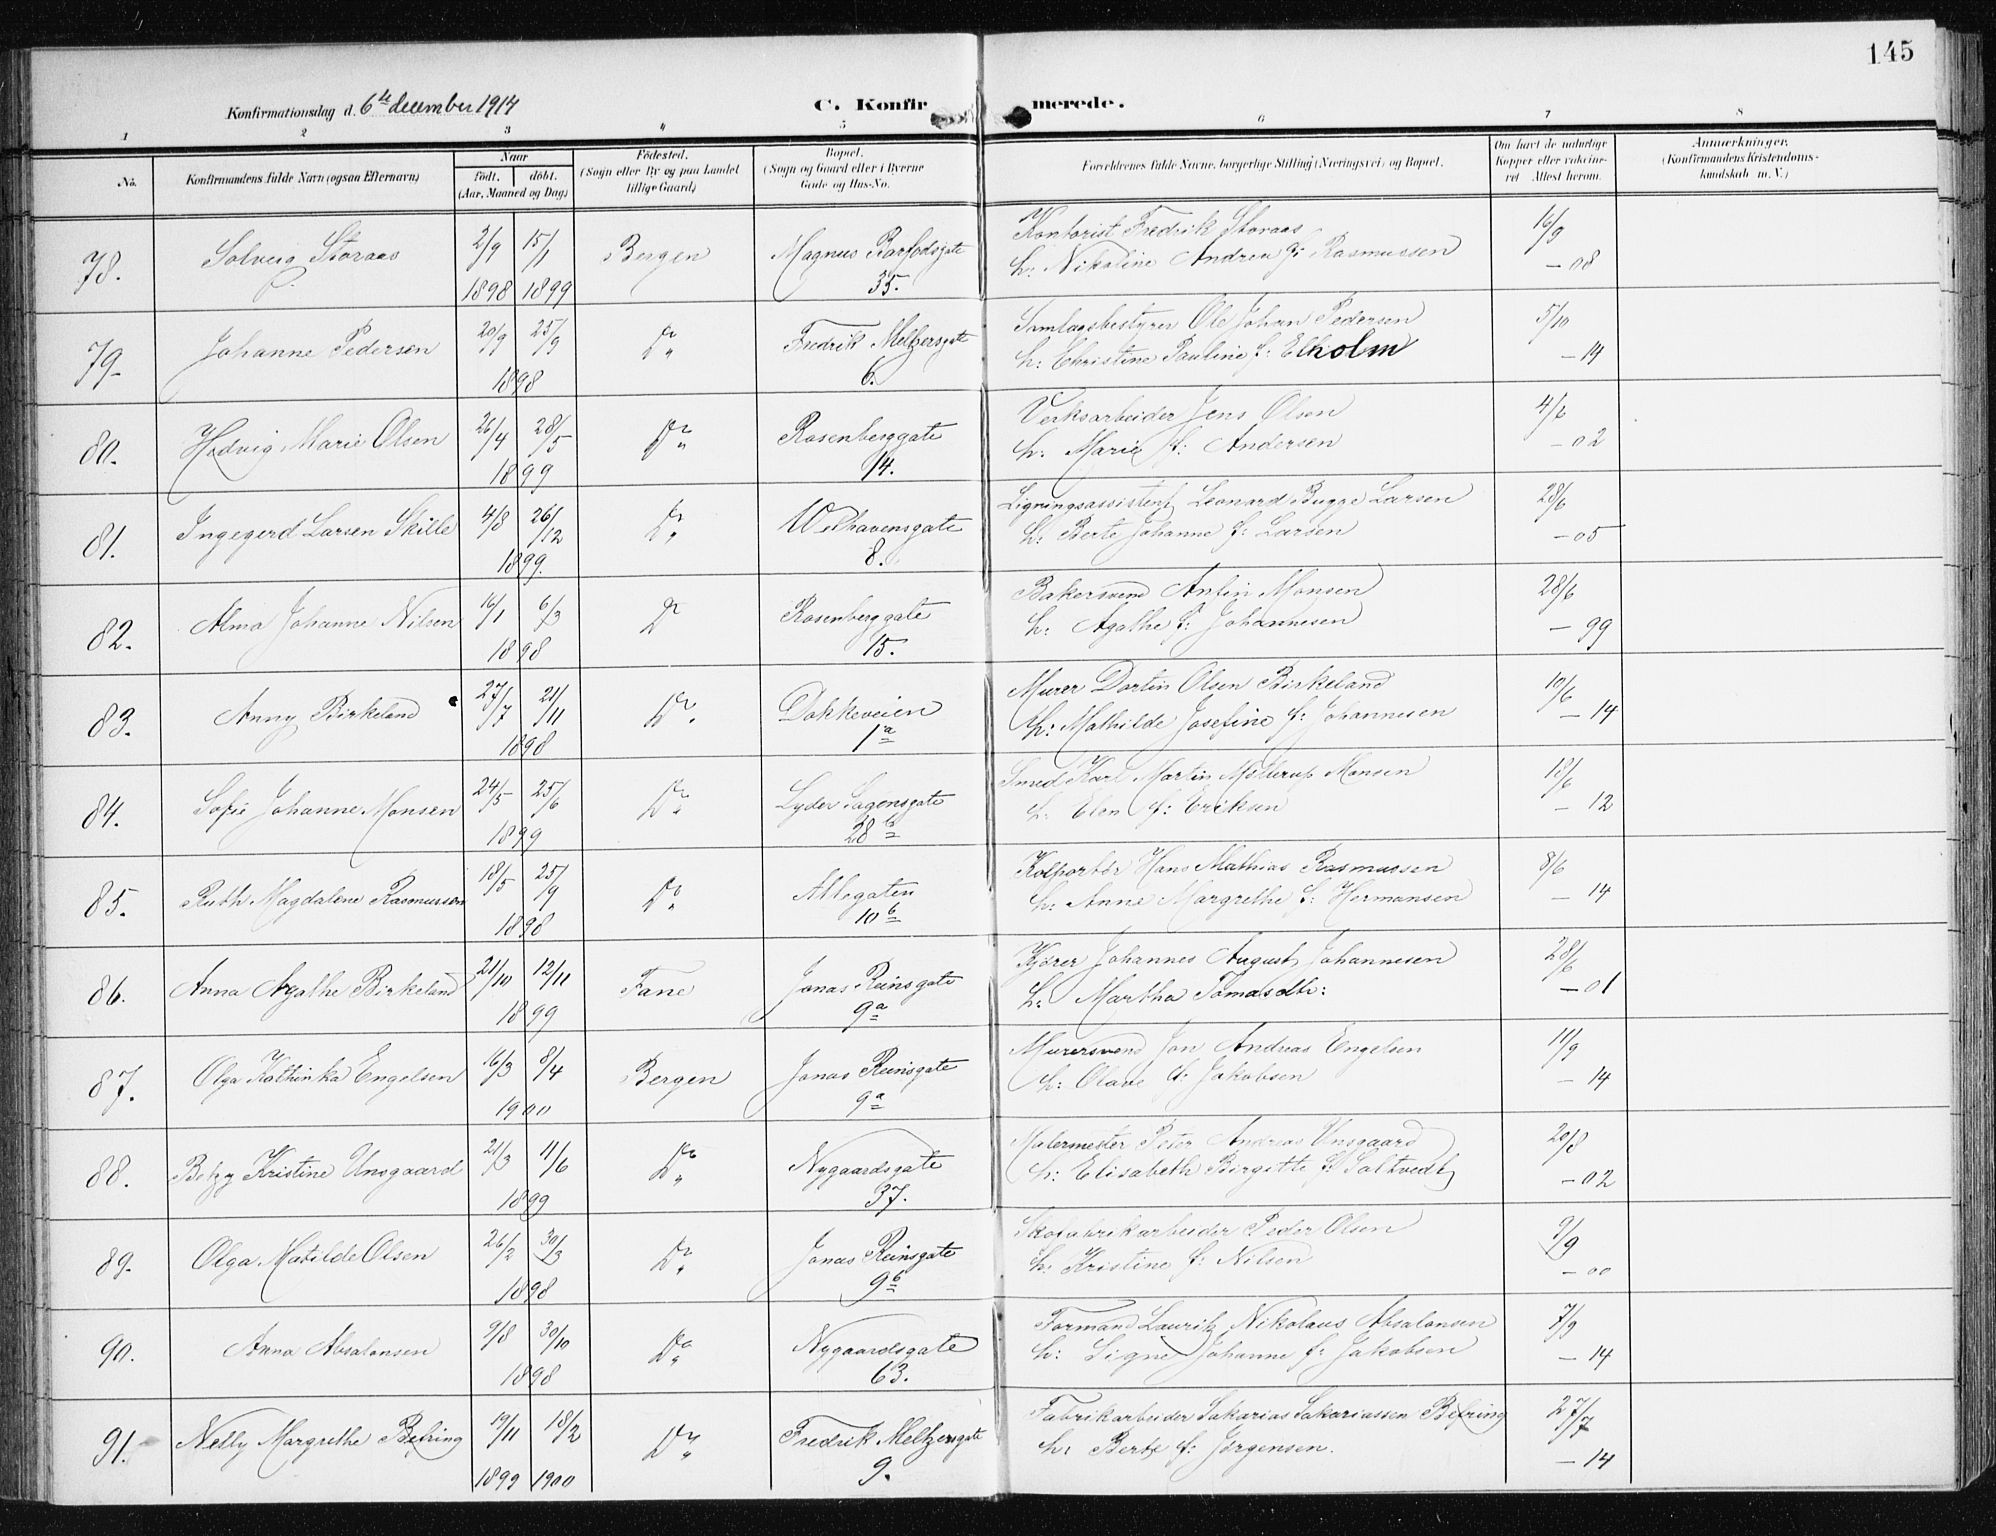 145
Konfirmationsdag d. 6te december 1914
C. Konfirmerede.
1 2 3 4 5 6 7 8
No.
Konfirmandens fulde Navn (ogsaa Efternavn)
Naar
født. døbt.
(Aar, Maaned og Dag)
Fødested.
(Sogn eller By og paa Landet
tillige Gaard.)
Bopæl.
(Sogn og Gaard eller i Byerne
Gade og Hus-No.
Forældrenes fulde Navne, borgerlige Stilling (Næringsvei) og Bopæl.
Om havt de naturlige
Kopper eller vakcine-
ret Attest herom.
Anmærkninger.
(Konfirmandens Kristendoms-
kundskab m. V.)
78. Solveig Storaas 2/9 1898 15/1 1899 Bergen Magnus Barfodsgate 35.
Kontorist Fredrik Storaas 16/9
h: Nikoline Andrea f: Rasmussen — 08
79. Johanne Pedersen 20/9 25/9 1898 Do „ Fredrik Meltzersgate 6.
Samlagsbestyrer Ole Johan Pedersen 5/10
h: Christine Pauline f: Ekholm — 14
80. Hedvig Marie Olsen 26/4 28/5 1899 Do „ Rosenberggate 14.
Verksarbeider Jens Olsen 4/6
h: Marie f: Andersen — 02
81. Ingegerd Larsen Skille 4/8 26/12 1899. Do „ Welhavensgate 8.
Ligningsassistent Leonard Bugge Larsen 28/6
h: Berte Johanne f: Larsen — 05
82. Alma Johanne Nilsen 16/1 6/3 1898 Do Rosenberggate 15.
Bakersvend Antin Monsen 28/6
h: Agathe f: Johannesen — 99
83. Anny Birkeland 27/7 21/11 1898 Do „ Dokkeveien 1a
Murer Dortin Olsen Birkeland 10/6
h: Mathilde Josefine f: Johannesen — 14
84. Sofie Johanne Monsen 24/5 25/6 1899 Do „ Lyder Sagensgate 28b
Smed Karl Martin Mollerup Monsen 18/6
h: Elen f: Eriksen — 12
85. Ruth Magdalene Rasmussen 18/5 25/9 1898 Do „ Allegaten 10b
Kolportør Hans Mathias Rasmussen 8/6
h: Anne Margrethe f: Hermansen — 14
86. Anna Agathe Birkeland 21/10 12/11 1899 Fane Jonas Reinsgate 9a
Kjører Johannes August Johannesen 28/6
h: Martha Tomasdtr: — 01
87. Olga Kathinka Engelsen 16/3 8/4 1900 Bergen Jonas Reinsgate 9a
Murersvend Jon Andreas Engelsen 11/9
h: Olave f: Jakobsen — 14
88. Betzy Kristine Unsgaard 21/3 11/6 1899 Do „ Nygaardsgate 37.
Malermester Peter Andreas Unsgaard 20/8
h: Elisabeth Birgitte f: Saltvedt — 02
89. Olga Matilde Olsen 26/2 30/3 1898 Do „ Jonas Reinsgate 9b
Skofabrikarbeider Peder Olsen 9/9
h: Kristine f: Nilsen — 00
90. Anna Absalonsen 9/8 30/10 1898 Do „ Nygaardsgate 63.
Formand Laurik Nikolaus Absalonsen 7/9
h: Signe Johanne f: Jakobsen — 14
91. Nelly Margrethe Befring 19/11 1899 18/2 1900 Do „ Fredrik Meltzersgate 9.
Fabrikarbeider Sakarias Sakariassen Befring 27/7
h: Berte f: Jørgensen. — 14